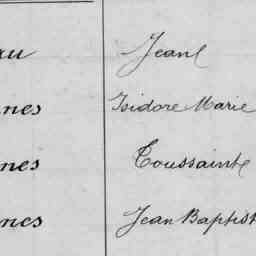 au Jean
nes Isidore Marie
nes Toussainte
nes Jean Baptist